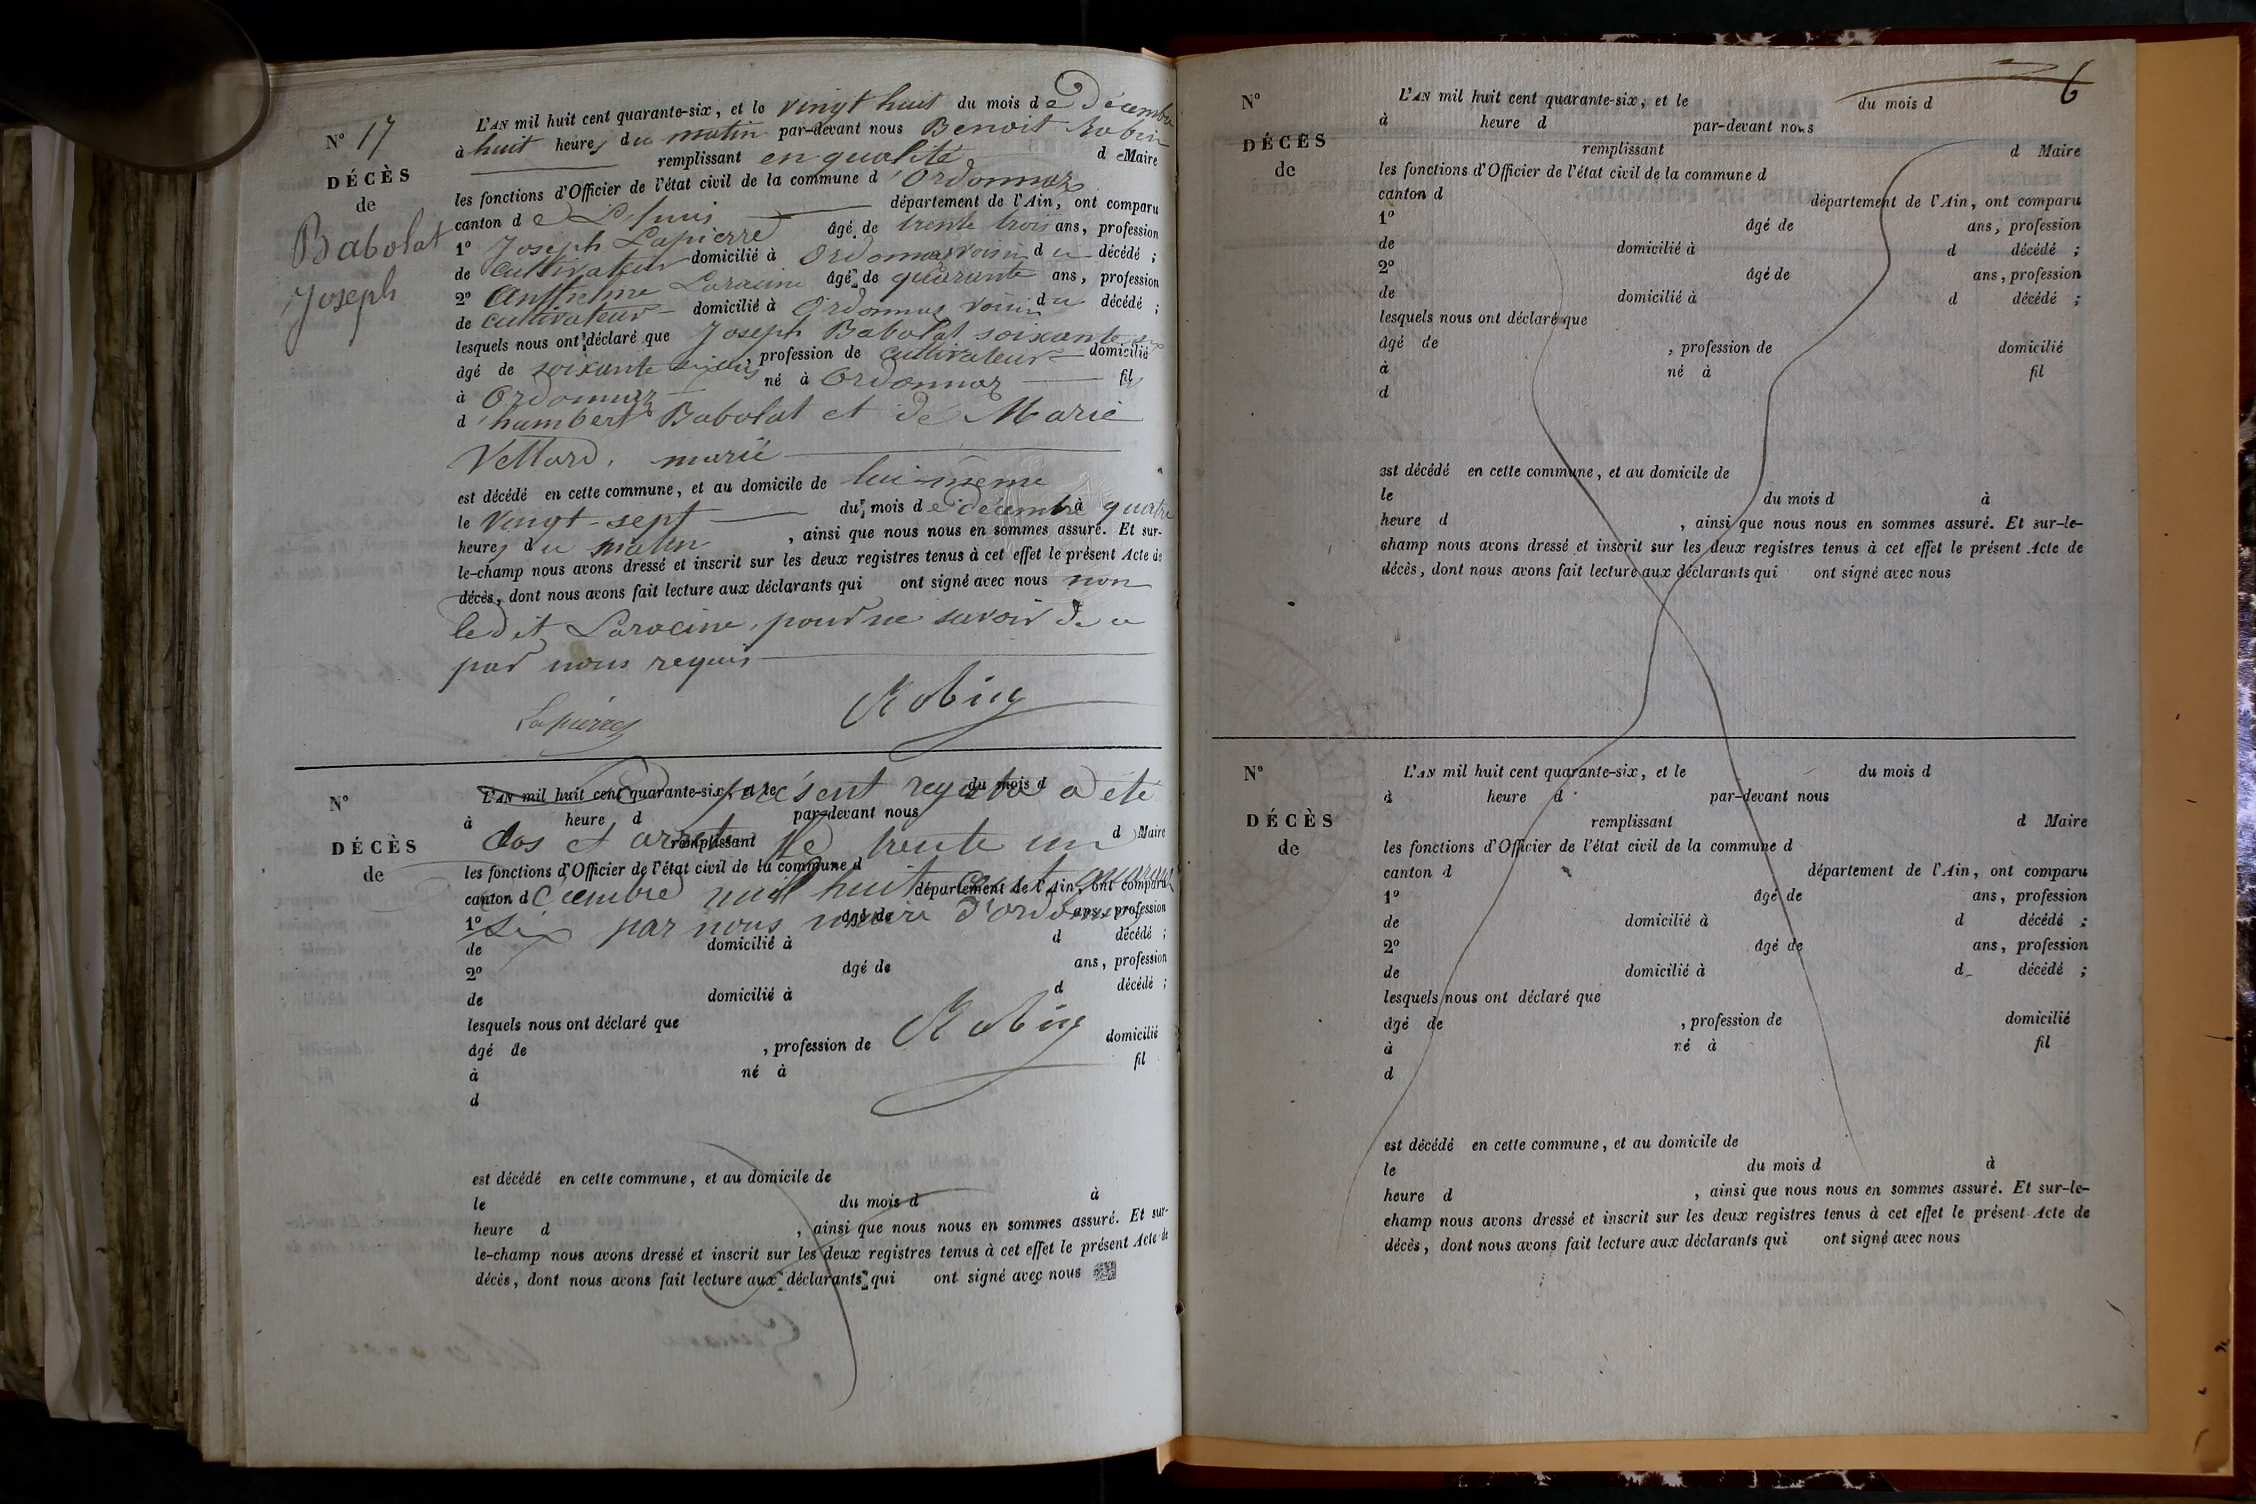 N° 17
DÉCÈS
de
Babolat
Joseph
L'AN mil huit cent quarante-six, et le vingt huit du mois de Décembre
à huit heures du matin par-devant nous Benoit Robin
remplissant en qualité de Maire
les fonctions d'Officier de l'état civil de la commune d'Ordonnaz
canton de L'huis département de l'Ain, ont comparu
1° Joseph Lapierre âgé de trente trois ans, profession
de cultivateur domicilié à Ordonnaz voisin du décédé ;
2° Anthelme Laracine âgé de quarante ans, profession
de cultivateur domicilié à Ordonnaz voisin du décédé ;
lesquels nous ont déclaré que Joseph Babolat soixante six
âgé de soixante six ans profession de cultivateur domicilié
à Ordonnaz né à Ordonnaz fils
d'humbert Babolat et de Marie
Vettard, marié
est décédé en cette commune, et au domicile de lui-même
le vingt-sept du mois de décembre à quatre
heures du matin, ainsi que nous nous en sommes assuré. Et sur-
le-champ nous avons dressé et inscrit sur les deux registres tenus à cet effet le présent Acte de
décès, dont nous avons fait lecture aux déclarants qui ont signé avec nous non
ledit Laracine, pour ne savoir de ce
par nous requis
Lapierre Robin
N°
DÉCÈS
de
L'AN mil huit cent quarante-six, et le du mois d
Le présent registre a été
à heure d par-devant nous
clos et arrêté le trente un
remplissant d Maire
les fonctions d'Officier de l'état civil de la commune d
décembre mil huit cent quarante
canton d département de l'Ain, ont comparu
six par nous maire d'ordonnaz
1° âgé de ans, profession
de domicilié à d décédé ;
2° âgé de ans, profession
de domicilié à d décédé ;
lesquels nous ont déclaré que
Robin
âgé de , profession de domicilié
à né à fil
d
est décédé en cette commune, et au domicile de
le du mois d à
heure d , ainsi que nous nous en sommes assuré. Et sur-
le-champ nous avons dressé et inscrit sur les deux registres tenus à cet effet le présent Acte de
décès, dont nous avons fait lecture aux déclarants qui ont signé avec nous
6
N°
DÉCÈS
de
L'AN mil huit cent quarante-six, et le du mois d
à heure d par-devant nous
remplissant d Maire
les fonctions d'Officier de l'état civil de la commune d
canton d département de l'Ain, ont comparu
1° âgé de ans, profession
de domicilié à d décédé ;
2° âgé de ans, profession
de domicilié à d décédé ;
lesquels nous ont déclaré que
âgé de , profession de domicilié
à né à fil
d
est décédé en cette commune, et au domicile de
le du mois d à
heure d , ainsi que nous nous en sommes assuré. Et sur-le-
champ nous avons dressé et inscrit sur les deux registres tenus à cet effet le présent Acte de
décès, dont nous avons fait lecture aux déclarants qui ont signé avec nous
N°
DÉCÈS
de
L'AN mil huit cent quarante-six, et le du mois d
à heure d par-devant nous
remplissant d Maire
les fonctions d'Officier de l'état civil de la commune d
canton d département de l'Ain, ont comparu
1° âgé de ans, profession
de domicilié à d décédé ;
2° âgé de ans, profession
de domicilié à d décédé ;
lesquels nous ont déclaré que
âgé de , profession de domicilié
à né à fil
d
est décédé en cette commune, et au domicile de
le du mois d à
heure d , ainsi que nous nous en sommes assuré. Et sur-le-
champ nous avons dressé et inscrit sur les deux registres tenus à cet effet le présent Acte de
décès, dont nous avons fait lecture aux déclarants qui ont signé avec nous